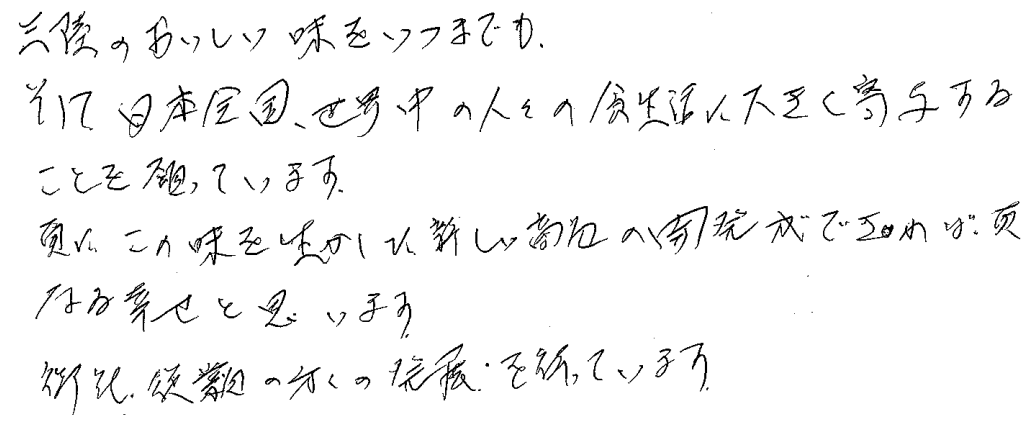 三陸のおいしい味をいつまでも、
そして日本全国、世界中の人々の食生活に大きく寄与する
ことを願っています。
更にこの味を生かした新しい商品の開発ができれば、更
なる幸せと思います。
の発展を祈っています。